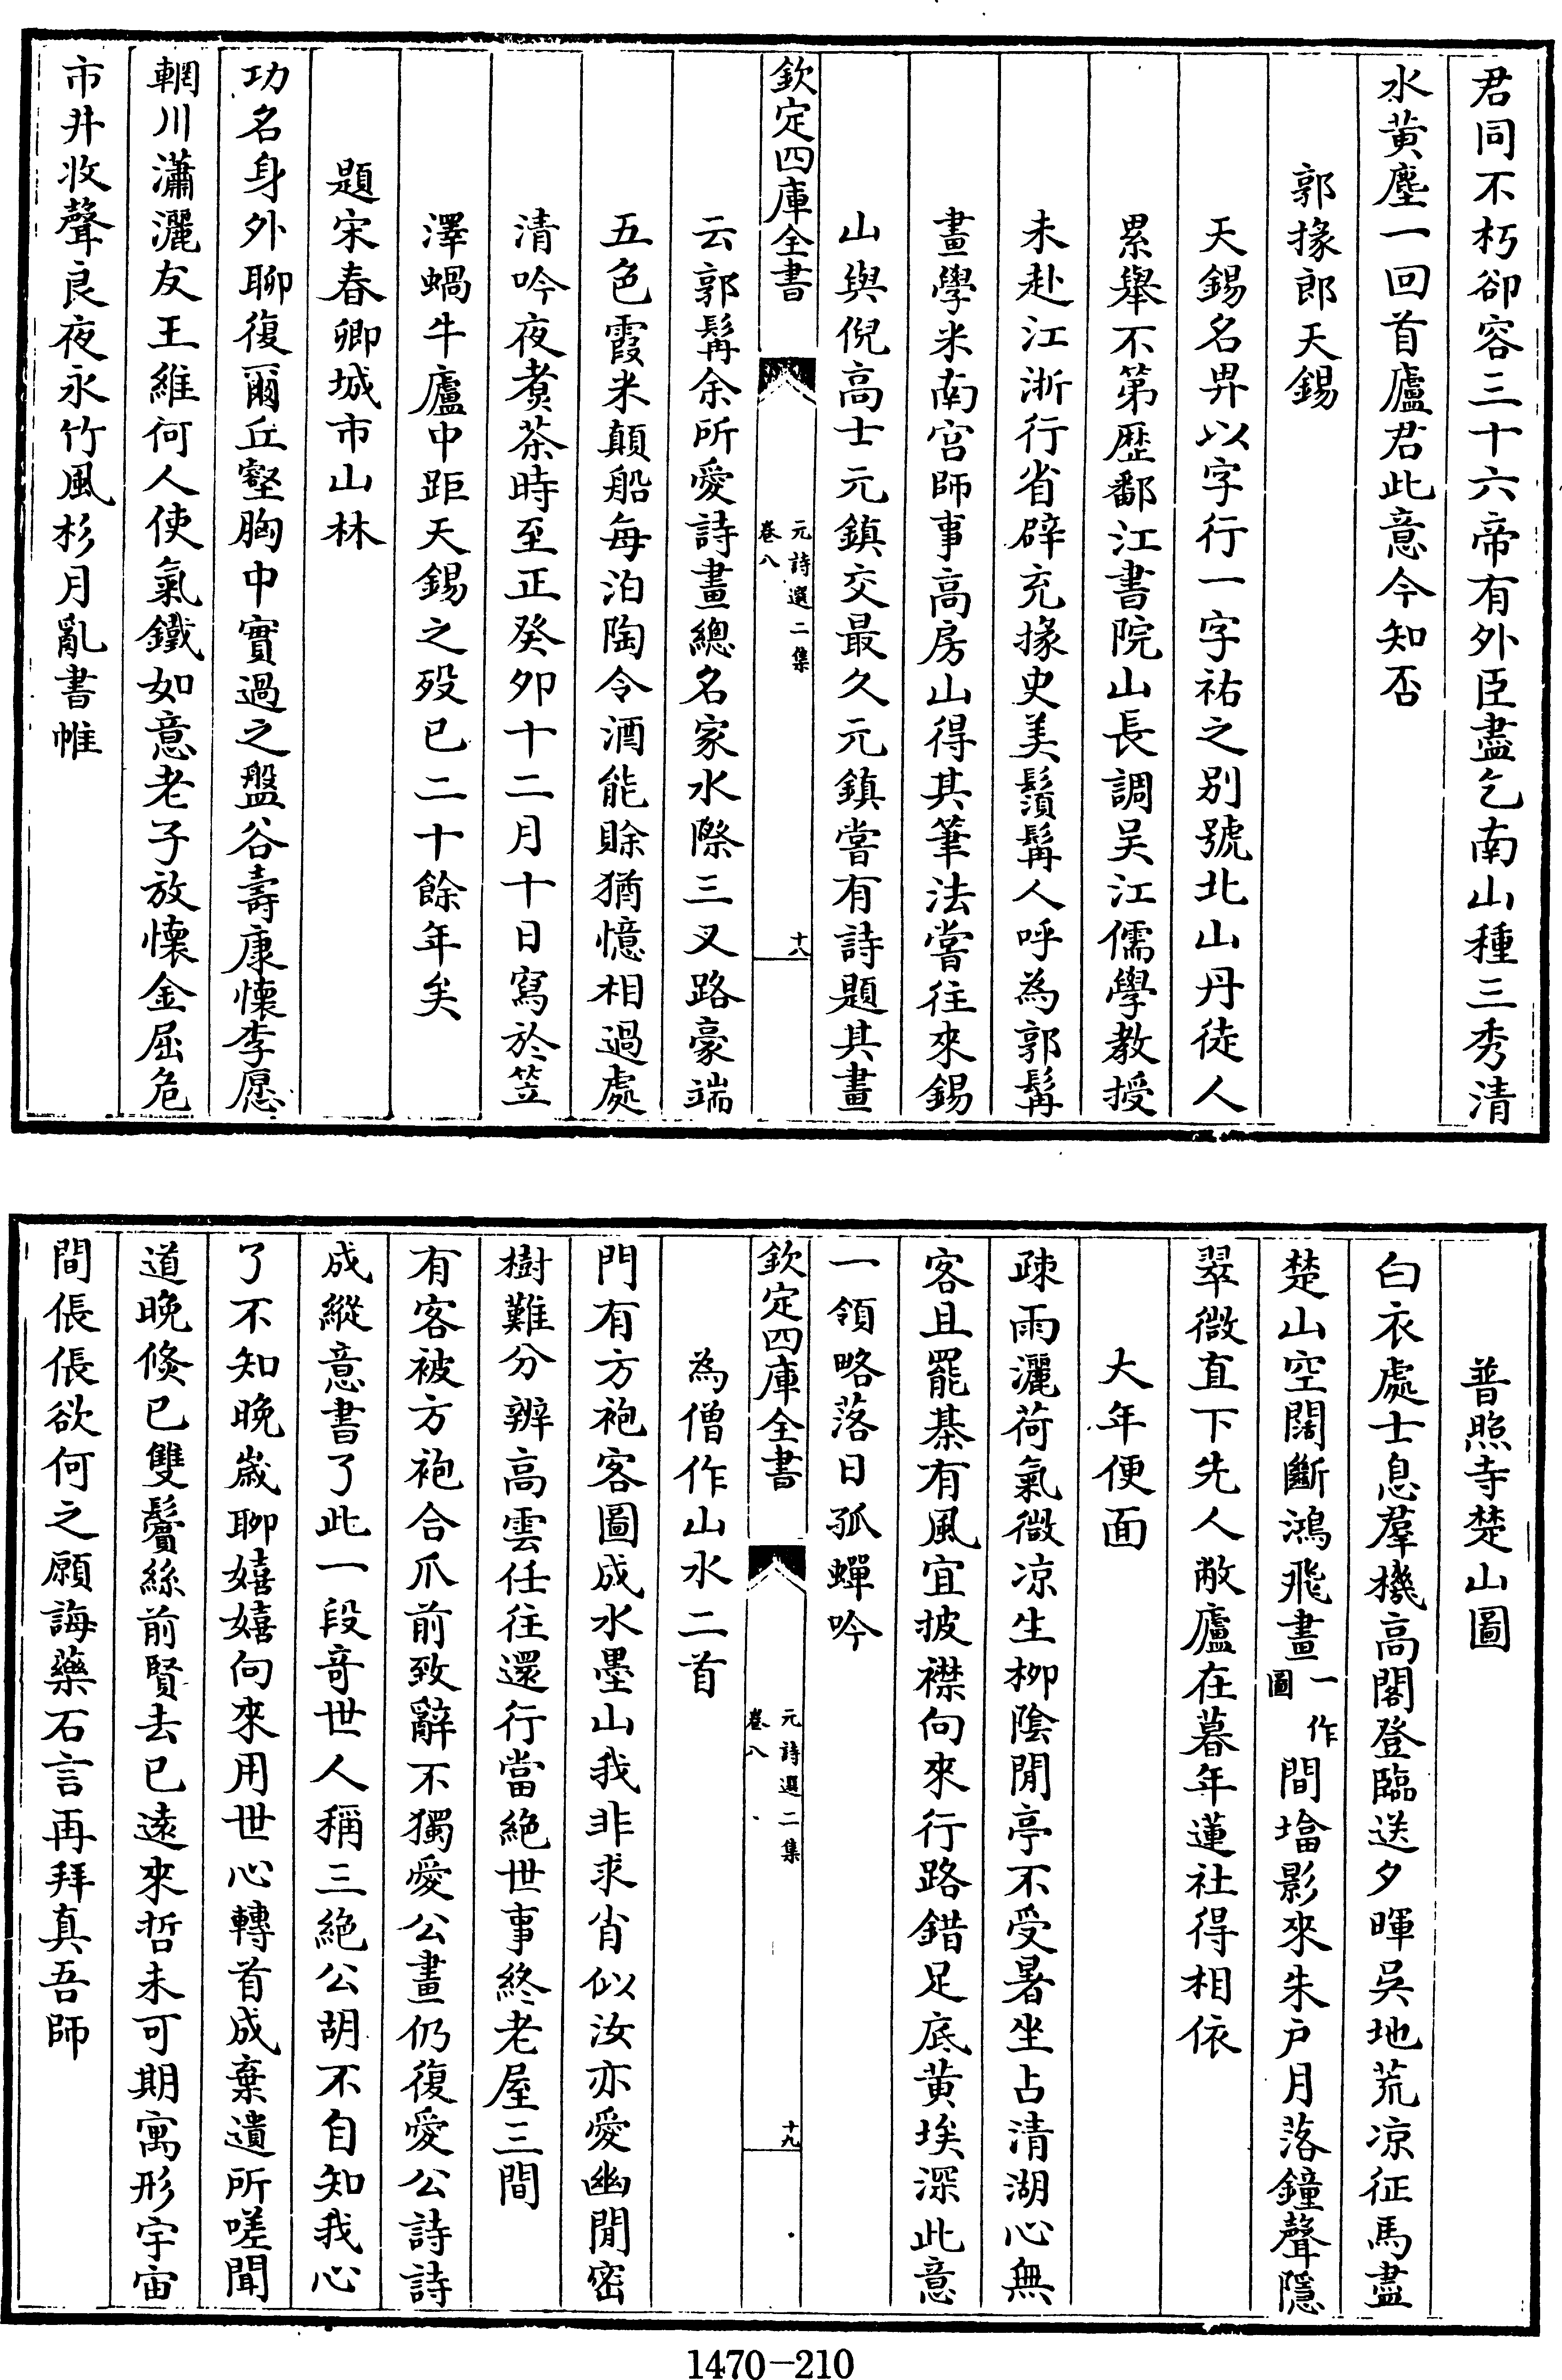 君同不朽卻容三十六帝有外臣盡乞南山種三秀清
水黄塵一回首廬君此意今知否
郭掾郎天錫
天錫名畀以字行一字祐之别號北山丹徒人
累舉不第歴鄱江書院山長調吴江儒學教授
未赴江浙行省辟充掾史美鬚髯人呼為郭髯
畫學米南宫師事高房山得其筆法嘗往來錫
山與倪高士元鎮交最久元鎮嘗有詩題其畫
欽定四庫全書
元詩選二集
卷八
十八
云郭髯余所愛詩畫總名家水際三叉路豪端
五色霞米顛船每泊陶令酒能賖猶憶相過處
清吟夜煑茶時至正癸卯十二月十日寫於笠
澤蝸牛廬中距天錫之殁已二十餘年矣
題宋春卿城市山林
功名身外聊復爾丘壑胸中實過之盤谷壽康懷李愿
輞川瀟灑友王維何人使氣鐵如意老子放懷金屈卮
市井收聲良夜永竹風杉月亂書帷
普照寺楚山圖
白衣處士息羣機髙閣登臨送夕暉吳地荒凉征馬盡
楚山空闊斷鴻飛畫一作圖間㙮影來朱户月落鐘聲隱
翠微直下先人敝廬在暮年蓮社得相依
大年便面
疎雨灑荷氣微凉生柳陰閒亭不受暑坐占清湖心無
客且罷棊有風宜披襟向來行路錯足底黄埃深此意
一領略落日孤蟬吟
欽定四庫全書
元詩選二集
卷八
十九
為僧作山水二首
門有方袍客圖成水墨山我非求肖似汝亦愛幽閒密
樹難分辨高雲任往還行當絶世事終老屋三間
有客被方袍合爪前致辭不獨愛公畫仍復愛公詩詩
成縱意書了此一段竒世人稱三絶公胡不自知我心
了不知晚嵗聊嬉嬉向來用世心轉首成棄遺所嗟聞
道晚倐已雙鬢絲前賢去已遠來哲未可期寓形宇宙
間倀倀欲何之願誨藥石言再拜真吾師
1470-210